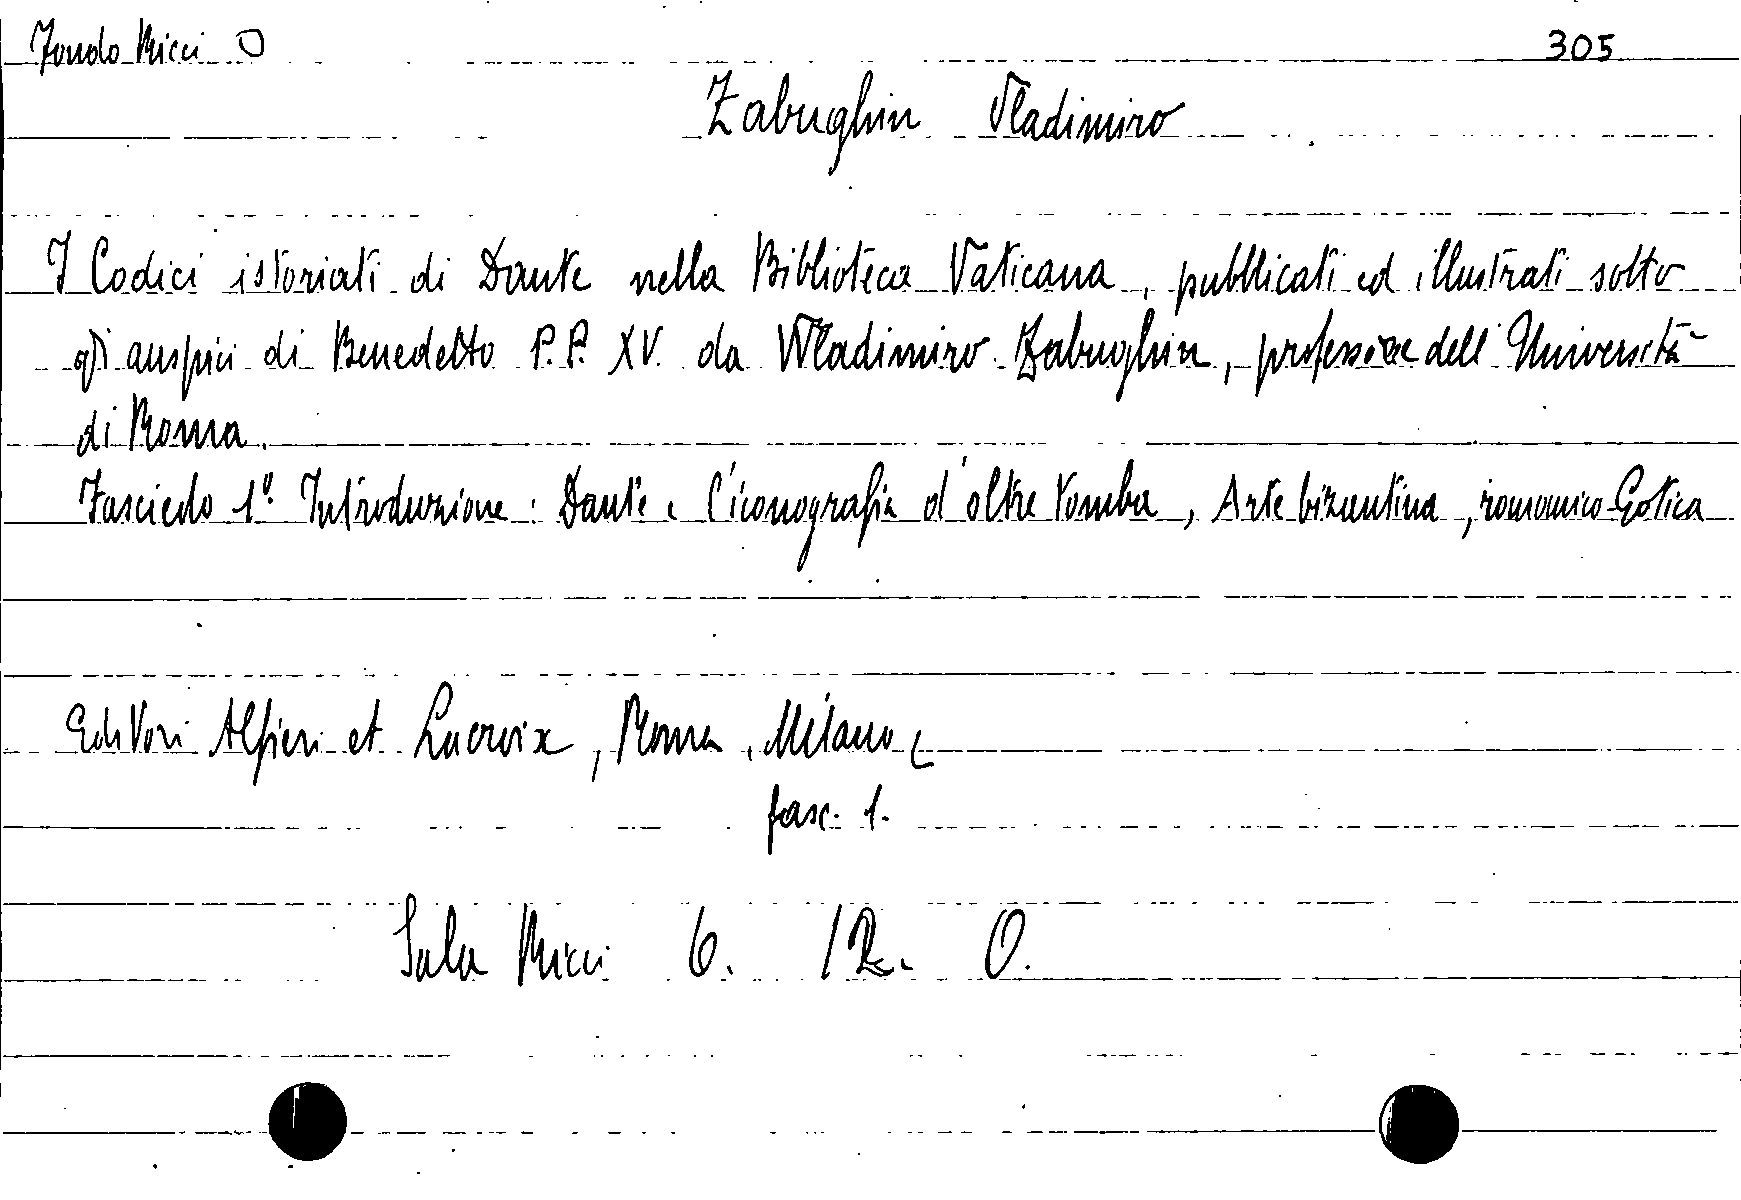 Fondo Ricci O
305
Zabughin Vladimiro
I Codici istoriati di Dante nella Biblioteca Vaticana, pubblicati ed illustrati sotto
gli auspici di Benedetto P.P. XV. da Wladimiro Zabughin, professore dell'Università
di Roma.
Fascicolo 1º. Introduzione: Dante e l'iconografia d'oltre tomba, Arte bizantina, romanico-Gotica
Editori Alfieri et Lacroix, Roma, Milano
fasc. 1.
Sala Ricci 6. 12. O.